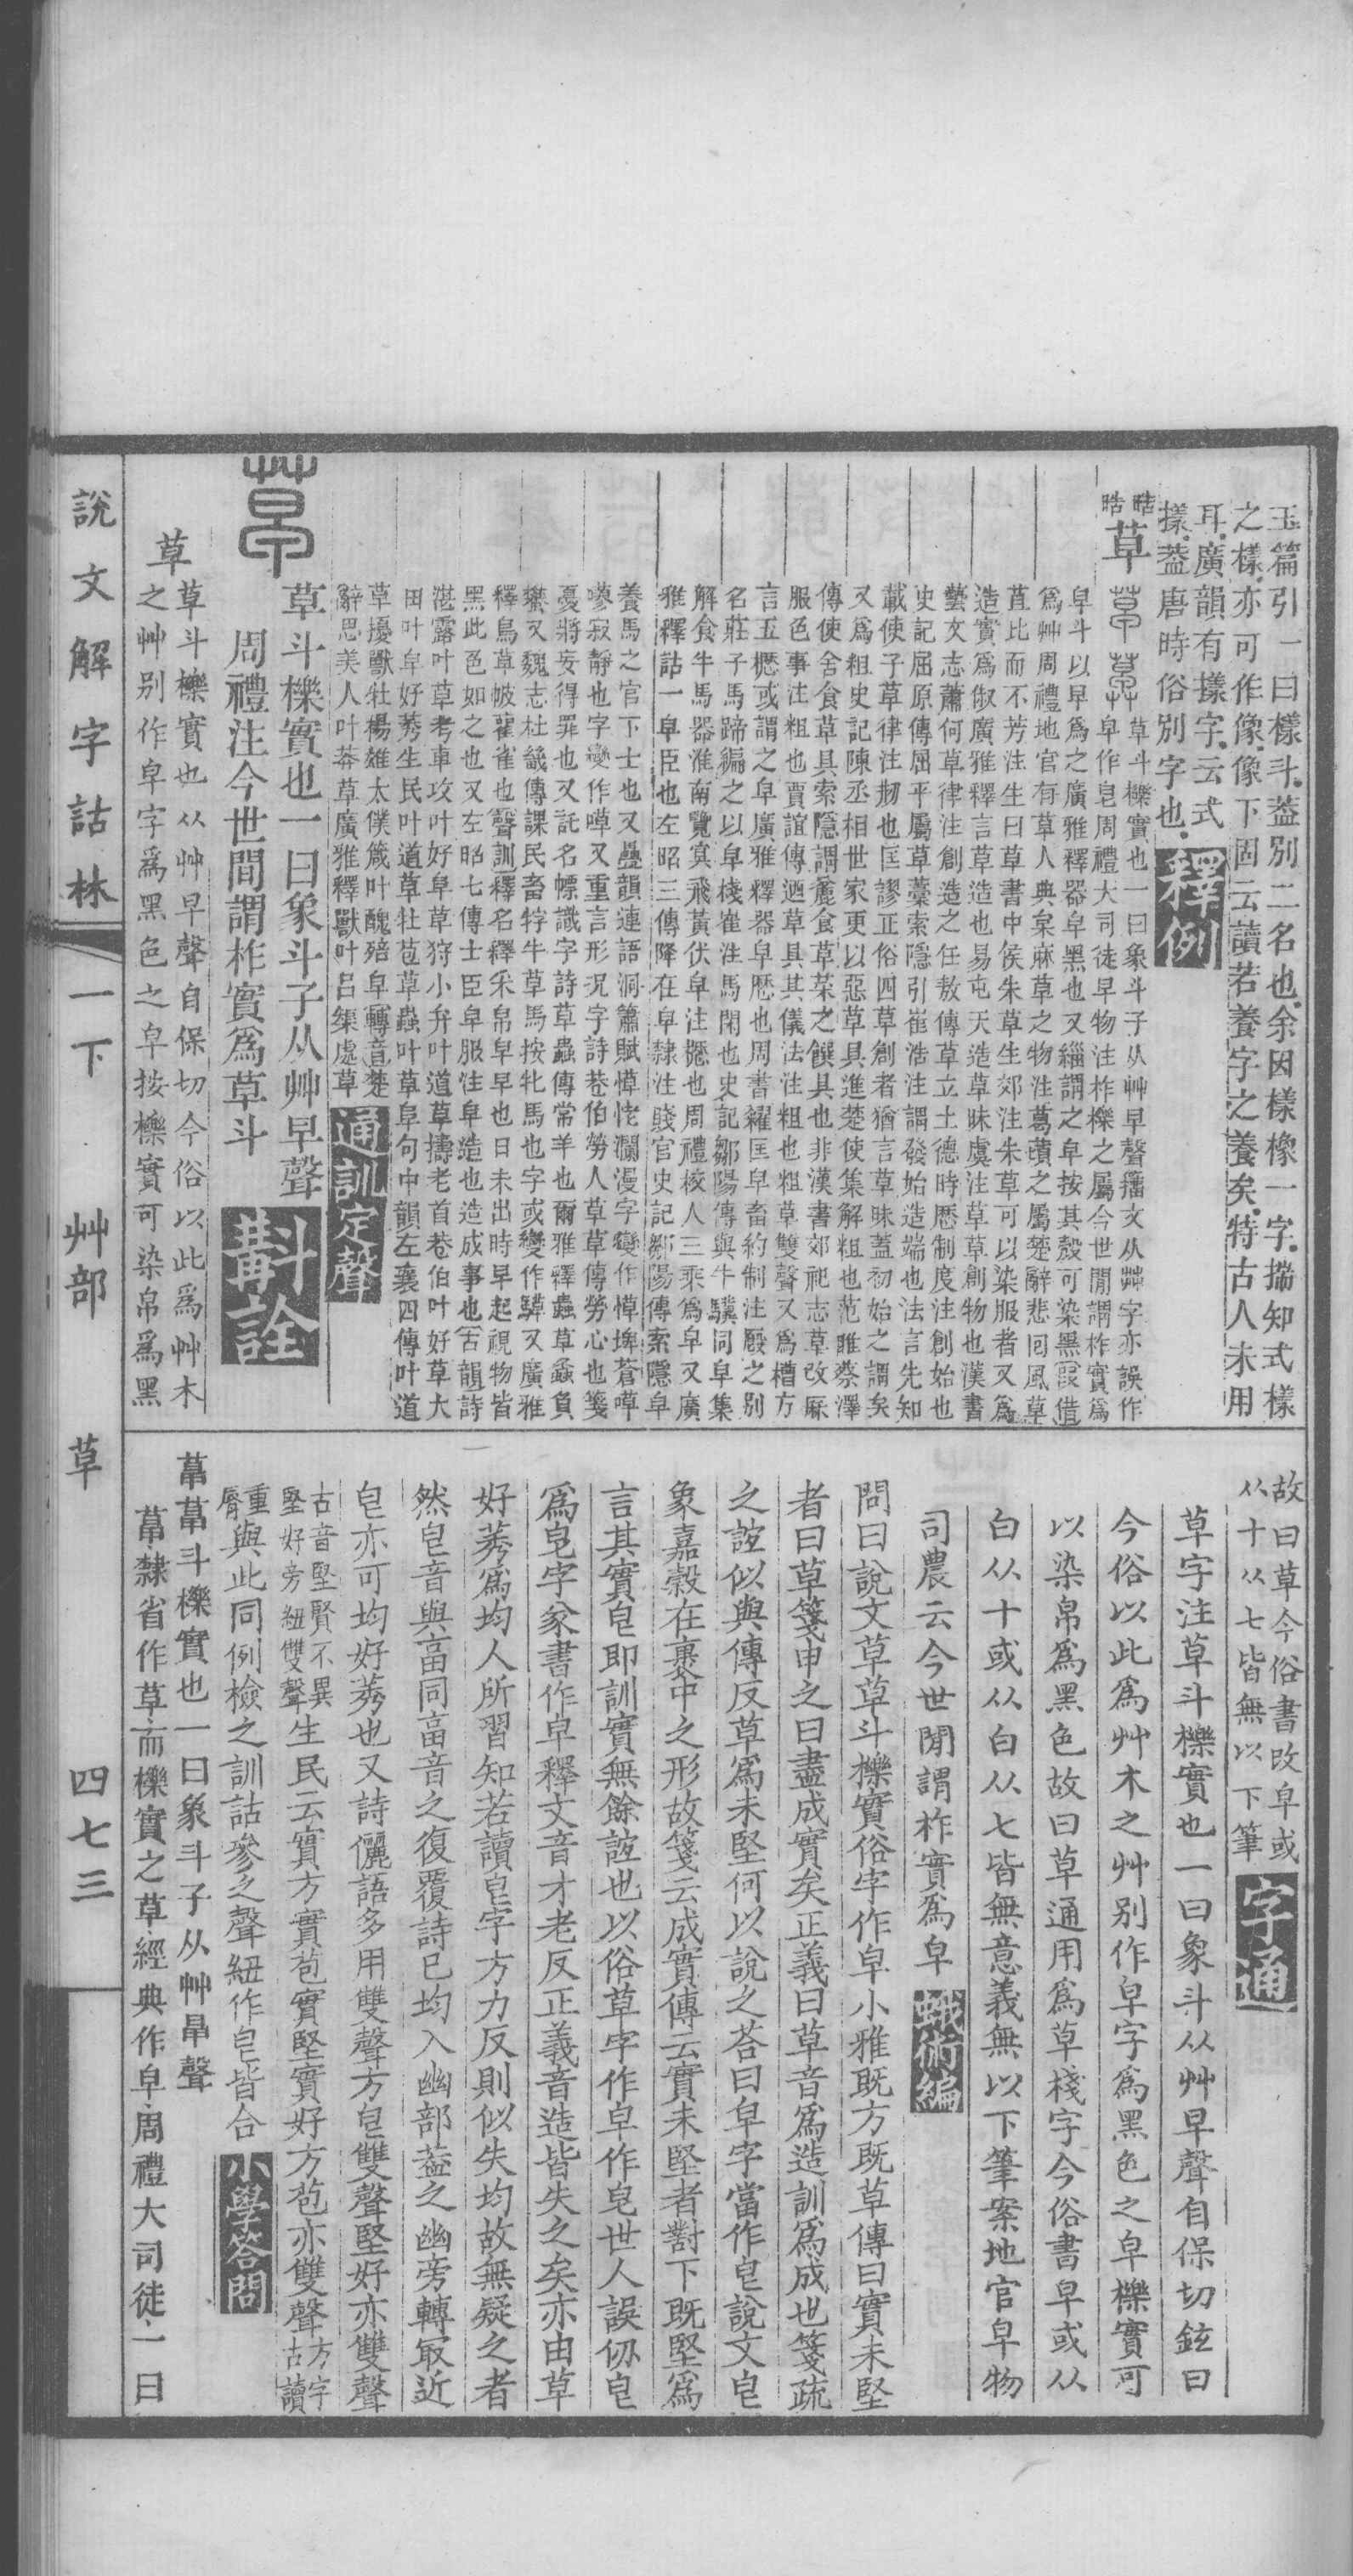 玉篇引一曰樣斗益別二名也余因樣橡一字揣知式樣
之樣亦可作像像下固云讀若養字之養矣特古人未用
耳廣韻有㨾字云式
㨾葢唐時俗別字也 釋例
草 草斗櫟實也一曰象斗子从艸早聲籒文从茻字亦誤作
皁作皂周禮大司徒早物注柞櫟之屬今世閒謂柞實爲
皁斗以早爲之廣雅釋器皁黑也又緇謂之皁按其殼可染黑假借
爲艸周禮地官有草人典枲麻草之物注葛蕢之屬楚辭悲回風草
苴比而不芳注生曰草書中侯朱草生郊注朱草可以染服者又爲
造實爲俶廣雅釋言草造也易屯天造草昧虞注草草創物也漢書
藝文志蕭何草律注創造之任敖傳草立土德時厯制度注創始也
史記屈原傳屈平屬草藁索隱引崔浩注謂發始造端也法言先知
載使子草律注刱也匡謬正俗四草創者猶言草昧蓋初始之謂矣
又爲粗史記陳丞相世家更以惡草具進楚使集解粗也范雎蔡澤
傳使舍食草具索隱謂麤食草菜之饌具也非漢書郊祀志草改厤
服色事注粗也賈誼傳迺草具其儀法注粗也粗草雙聲又爲槽方
言五櫪或謂之皁廣雅釋器皁櫪也周書糴匡皁畜約制注廏之別
名莊子馬蹄編之以皁棧崔注馬閑也史記鄒陽傳與牛驥同皁集
解食牛馬器淮南覽冥飛黃伏皁注櫪也周禮校人三乘爲皁又廣
雅釋詁一皁臣也左昭三傳降在皁隸注賤官史記鄒陽傳索隱皁
養馬之官下士也又疊韻連語洞簫賦愺恅瀾漫字變作愺埤蒼嘽
嘇寂靜也字變作嘽又重言形況字詩巷伯勞人草草傳勞心也箋
憂將妄得罪也又託名幖識字詩草蟲傳常羊也爾雅釋蟲草螽負
蠜又魏志杜畿傳課民畜牸牛草馬按牝馬也字或變作騲又廣雅
釋鳥草鴱雚雀也聲訓釋名釋采帛皁早也日未出時早起視物皆
黑此色如之也又左昭七傳士臣皁服注皁造也造成事也古韻詩
湛露叶草考車攻叶好阜草狩小弁叶道草擣老首巷伯叶好草大
田叶皁好莠生民叶道草牡苞草蟲叶草阜句中韻左襄四傳叶道
草擾獸牡楊雄太僕箴叶醜㱿皁轉音楚
辭思美人叶莽草廣雅釋獸叶呂渠處草 通訓定聲
草斗櫟實也一曰象斗子从艸早聲
周禮注今世間謂柞實爲草斗 斠詮
草 草斗櫟實也从艸早聲自保切今俗以此爲艸木
之艸別作皁字爲黑色之皁按櫟實可染帛爲黑
故曰草今俗書改皁或
从十从七皆無以下筆 字通
草字注草斗櫟實也一曰象斗从艸早聲自保切鉉曰
今俗以此爲艸木之艸別作皁字爲黑色之皁櫟實可
以染帛爲黑色故曰草通用爲草棧字今俗書皁或从
白从十或从白从七皆無意義無以下筆案地官皁物
司農云今世閒謂柞實爲皁 蛾術編
問曰說文草草斗櫟實俗字作皁小雅既方既草傳曰實未堅
者曰草箋申之曰盡成實矣正義曰草音爲造訓爲成也箋疏
之誼似與傳反草爲未堅何以說之荅曰皁字當作皀說文皀
象嘉穀在裹中之形故箋云成實傳云實未堅者對下既堅爲
言其實皀即訓實無餘誼也以俗草字作皁作皂世人誤仞皀
爲皂字㒸書作皁釋文音才老反正義音造皆失之矣亦由草
好莠爲均人所習知若讀皀字方力反則似失均故無疑之者
然皀音與畐同畐音之復覆詩已均入幽部葢之幽旁轉冣近
皀亦可均好莠也又詩儷語多用雙聲方皀雙聲堅好亦雙聲
古音堅賢不異
堅好旁紐雙聲 生民云實方實苞實堅實好方苞亦雙聲 方字
古讀
重
脣 與此同例檢之訓詁參之聲紐作皀皆合 小學答問
草 草斗櫟實也一曰象斗子从艸早聲
草隸省作草而櫟實之草經典作皁周禮大司徒一曰
說文解字詁林 一下 艸部 草 四七三